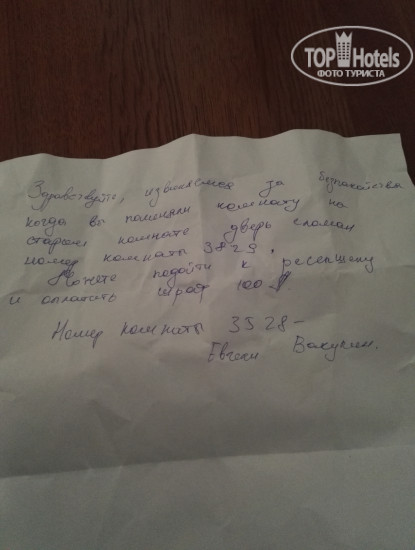 TOP Hotels
ФОТО ТУРИСТА
Здравствуйте, извиняемся за безпакойства
когда вы поминяли комнату на
старом комнате дверь сломан
номер комнаты 3829,
Можете подойти к ресепшену
и оплатить штраф 100$.
Номер комнаты 3528-
Евгени Вакулин.